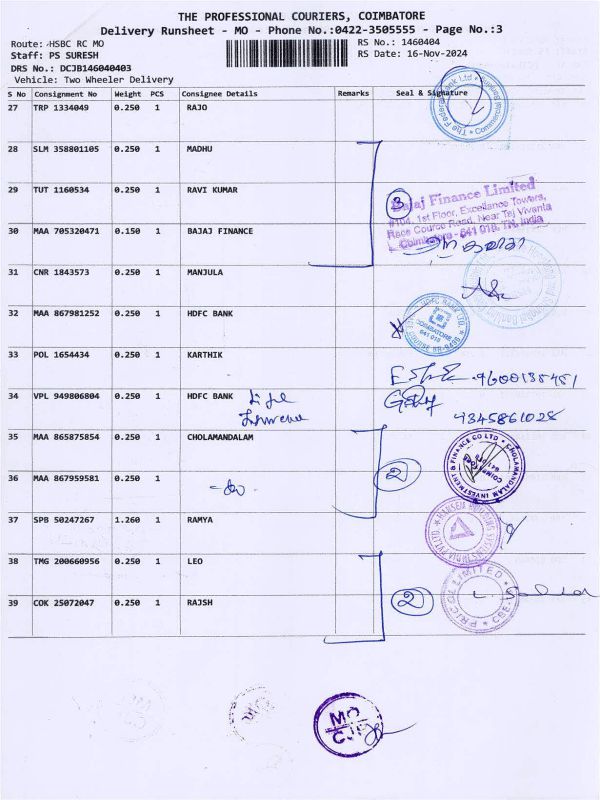 THE PROFESSIONAL COURIERS, COIMBATORE
Delivery Runsheet - MO - Phone No.:0422-3505555 - Page No.:3
Route: HSBC RC MO
RS No.: 1460404
Staff: PS SURESH
RS Date: 16-Nov-2024
DRS No.: DCJB146040403
Vehicle: Two Wheeler Delivery
S No Consignment No Weight PCS Consignee Details Remarks Seal & Signature
27 TRP 1334049 0.250 1 RAJO
The Federal Bank Ltd
28 SLM 358801105 0.250 1 MADHU
29 TUT 1160534 0.250 1 RAVI KUMAR
3
Bajaj Finance Limited
#104, 1st Floor, Excellance Towers,
Race Course Road, Near Taj Vivanta
Coimbatore - 641 018, TN, India
30 MAA 705320471 0.150 1 BAJAJ FINANCE
31 CNR 1843573 0.250 1 MANJULA
32 MAA 867981252 0.250 1 HDFC BANK
HDFC BANK LTD.
COIMBATORE
641 018
33 POL 1654434 0.250 1 KARTHIK
9600135451
34 VPL 949806804 0.250 1 HDFC BANK Life
Insurance
9345861028
35 MAA 865875854 0.250 1 CHOLAMANDALAM
CHOLAMANDALAM INVESTMENT & FINANCE CO LTD
36 MAA 867959581 0.250 1 -do-
2
37 SPB 50247267 1.260 1 RAMYA
38 TMG 200660956 0.250 1 LEO
39 COK 25072047 0.250 1 RAJSH
2
PRICOL LIMITED
CBE
MO
CJB